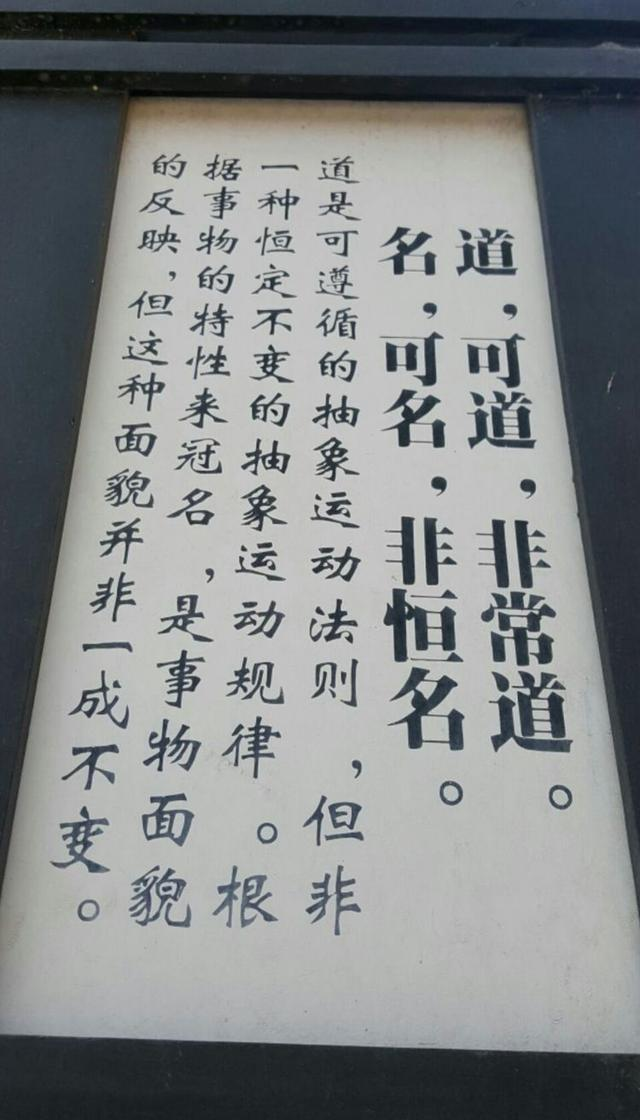 道，可道，非常道。
名，可名，非恒名。
道是可遵循的抽象运动法则，但非
一种恒定不变的抽象运动规律。根
据事物的特性来冠名，是事物面貌
的反映，但这种面貌并非一成不变。